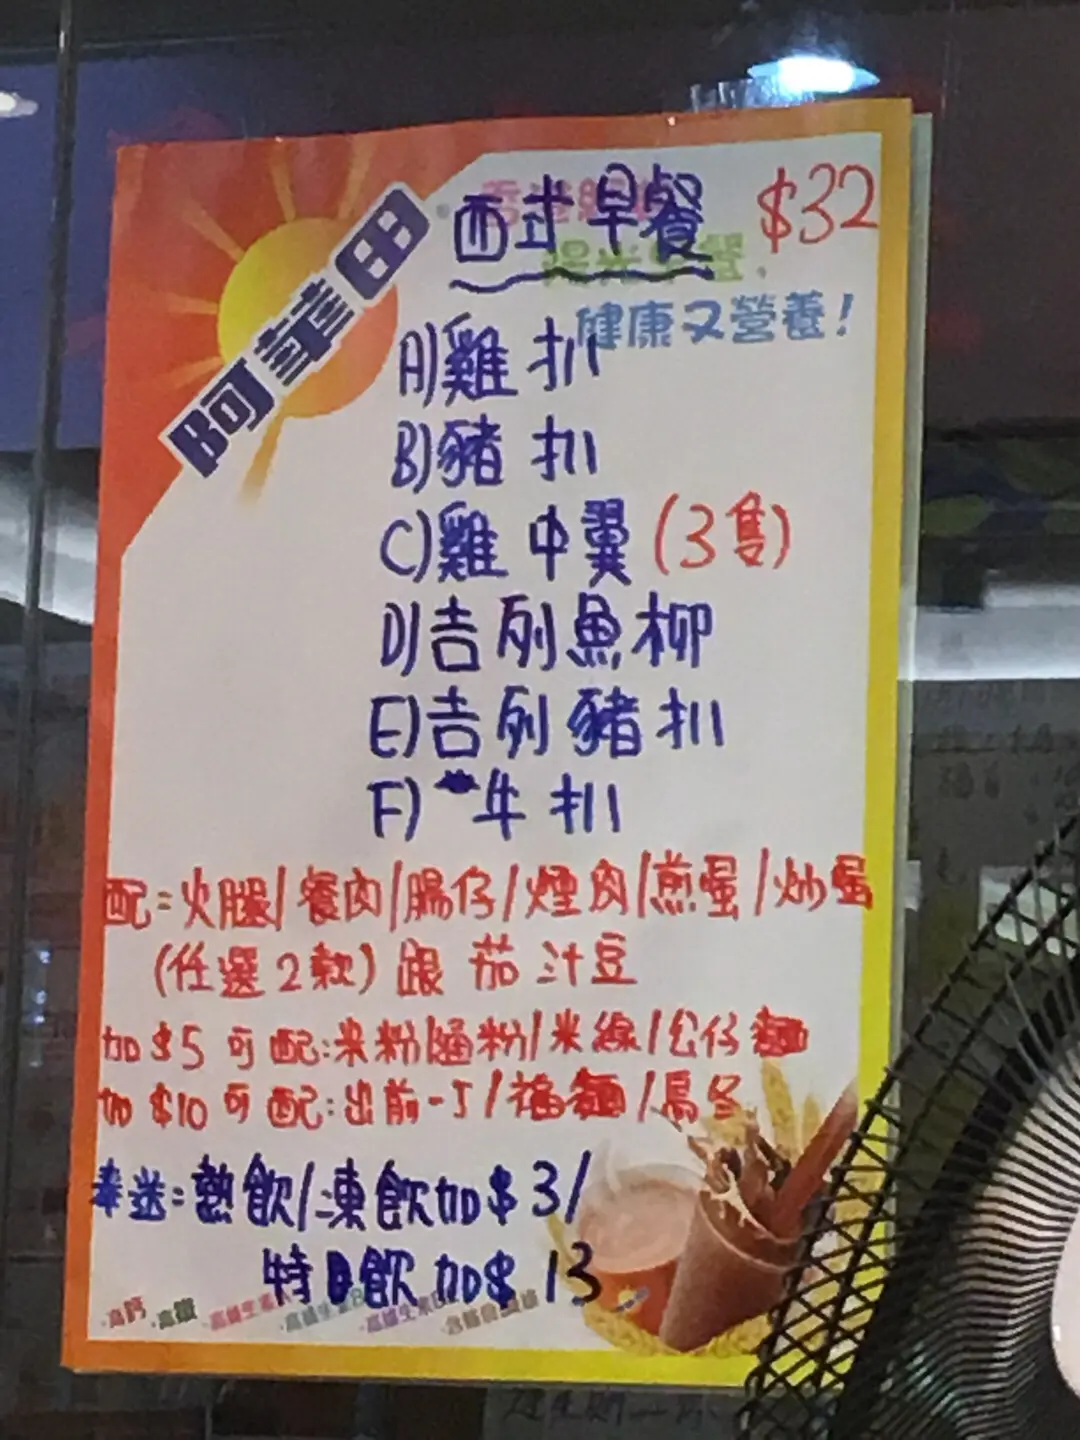 阿華田
西式早餐 $32
健康又營養!
A)雞扒
B)豬扒
C)雞中翼(3隻)
D)吉列魚柳
E)吉列豬扒
F)牛扒
配:火腿/餐肉/腸仔/煙肉/煎蛋/炒蛋
(任選2款)跟茄汁豆
加$5可配:米粉/通粉/米線/公仔麵
加$10可配:出前一丁/福麵/烏冬
奉送:熱飲/凍飲加$3/
特飲加$13
·高鈣 ·高鐵